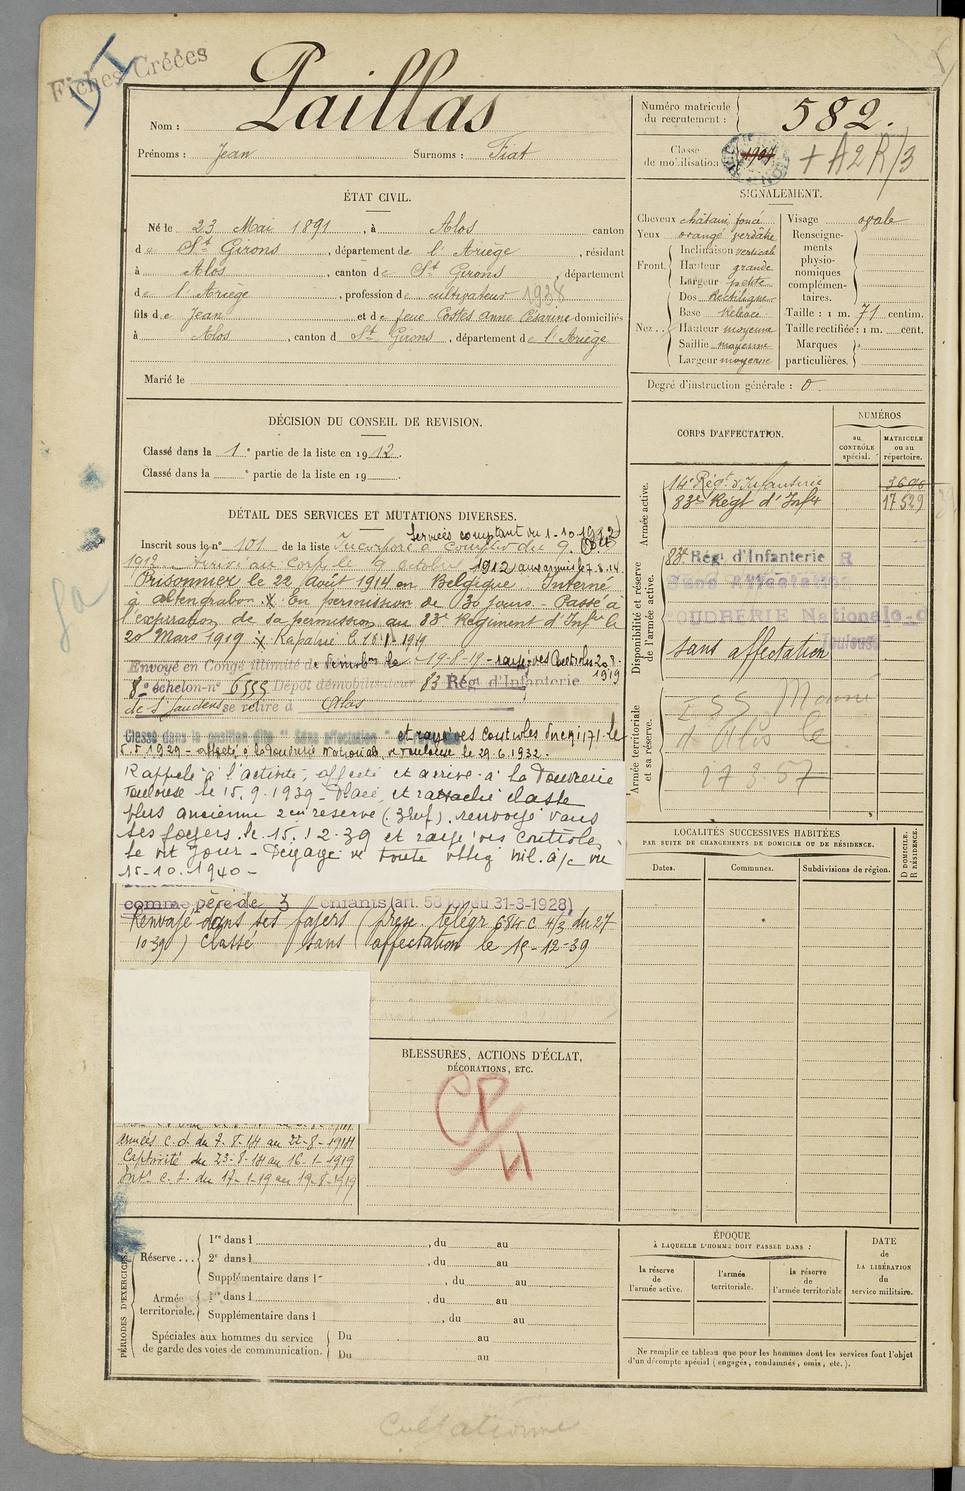 Fiches Créées
Nom : Paillas
Prénoms : Jean Surnoms : Fiat
Numéro matricule du recrutement : 582.
Classe de mobilisation + A2R/3
ÉTAT CIVIL.
Né le 23 Mai 1891, à Alos canton
de St Girons, département de l'Ariège, résidant
à Alos, canton de St Girons, département
de l'Ariège, profession de cultivateur 1938
fils de Jean et de feue Costes Anne Césarine domiciliés
à Alos, canton d St Girons, département de l'Ariège
Marié le
SIGNALEMENT.
Cheveux châtain foncé
Yeux orangé verdâtre
Front. Inclinaison verticale
Hauteur grande
Largeur petite
Nez. Dos Rectiligne
Base relevée
Hauteur moyenne
Saillie moyenne
Largeur moyenne
Visage ovale
Renseignements physionomiques complémentaires.
Taille : 1 m. 71 centim.
Taille rectifiée : 1 m. cent.
Marques particulières.
Degré d'instruction générale : 0
DÉCISION DU CONSEIL DE REVISION.
Classé dans la 1e partie de la liste en 1912.
Classé dans la e partie de la liste en 19
DÉTAIL DES SERVICES ET MUTATIONS DIVERSES.
Services comptant du 1-10-1912
Inscrit sous le n° 101 de la liste Incorporé à compter du 9 Oct
1912. Arrivé au Corps le 9 octobre 1912 aux armées le 7.8.14.
Prisonnier le 22 Août 1914 en Belgique. Interné
à Altengrabow. En permission de 30 jours. Passé à
l'expiration de sa permission au 83e Régiment d'Infie le
20 Mars 1919 Rapatrié le
Envoyé en Congé illimité de démobon le 19-8-19 - rayé des Controles 20-8-1919
8e échelon n° 6555 Dépôt démobilisateur 83 Régt d'Infanterie
de St Gaudens se retire à Alos
Classé dans la position dite " Sans affectation " et rayé des Controles
affecté à la Poudrerie Nationale de Toulouse le 29.6.1932.
Rappelé à l'activité, affecté et arrivé à la Poudrerie
Toulouse le 15.9.1939 - Placé et rattaché classe
plus ancienne 2eme réserve (3 enf). renvoyé dans
ses foyers le 15.12.39 et rayé des controles
le dit jour - Dégagé de toute oblig mil. à/c du
15-10-1940 -
comme père de 3 enfants (art. 58 loi du 31-3-1928)
Renvoyé dans ses foyers (presc. télégr 684 c 4/3 du 27-
10-39) Classé sans affectation le 15-12-39
armées c.d. du 7-8-14 au 22-8-1914
Captivité du 23-8-14 au 16-1-1919
Intr c.d. du 17-1-19 au 19-8-1919
BLESSURES, ACTIONS D'ÉCLAT,
DÉCORATIONS, ETC.
CORPS D'AFFECTATION.
NUMÉROS
au CONTRÔLE spécial.
MATRICULE ou au répertoire.
Armée active.
14e Régt d'Infanterie 3696
83e Régt d'Infie 17539
Disponibilité et réserve de l'armée active.
83e Régt d'Infanterie R
Sans affectation
POUDRERIE Nationale
Toulouse
sans affectation
Armée territoriale et sa réserve.
LOCALITÉS SUCCESSIVES HABITÉES
PAR SUITE DE CHANGEMENTS DE DOMICILE OU DE RÉSIDENCE.
Dates.
Communes.
Subdivisions de région.
D DOMICILE. R RÉSIDENCE.
PÉRIODES D'EXERCICES
Réserve ... 1re dans l , du au
2e dans l , du au
Supplémentaire dans l , du au
Armée territoriale. 1re dans l , du au
Supplémentaire dans l , du au
Spéciales aux hommes du service
de garde des voies de communication. Du au
Du au
ÉPOQUE
À LAQUELLE L'HOMME DOIT PASSER DANS :
la réserve de l'armée active.
l'armée territoriale.
la réserve de l'armée territoriale
DATE de LA LIBÉRATION du service militaire.
Ne remplir ce tableau que pour les hommes dont les services font l'objet
d'un décompte spécial (engagés, condamnés, omis, etc.).